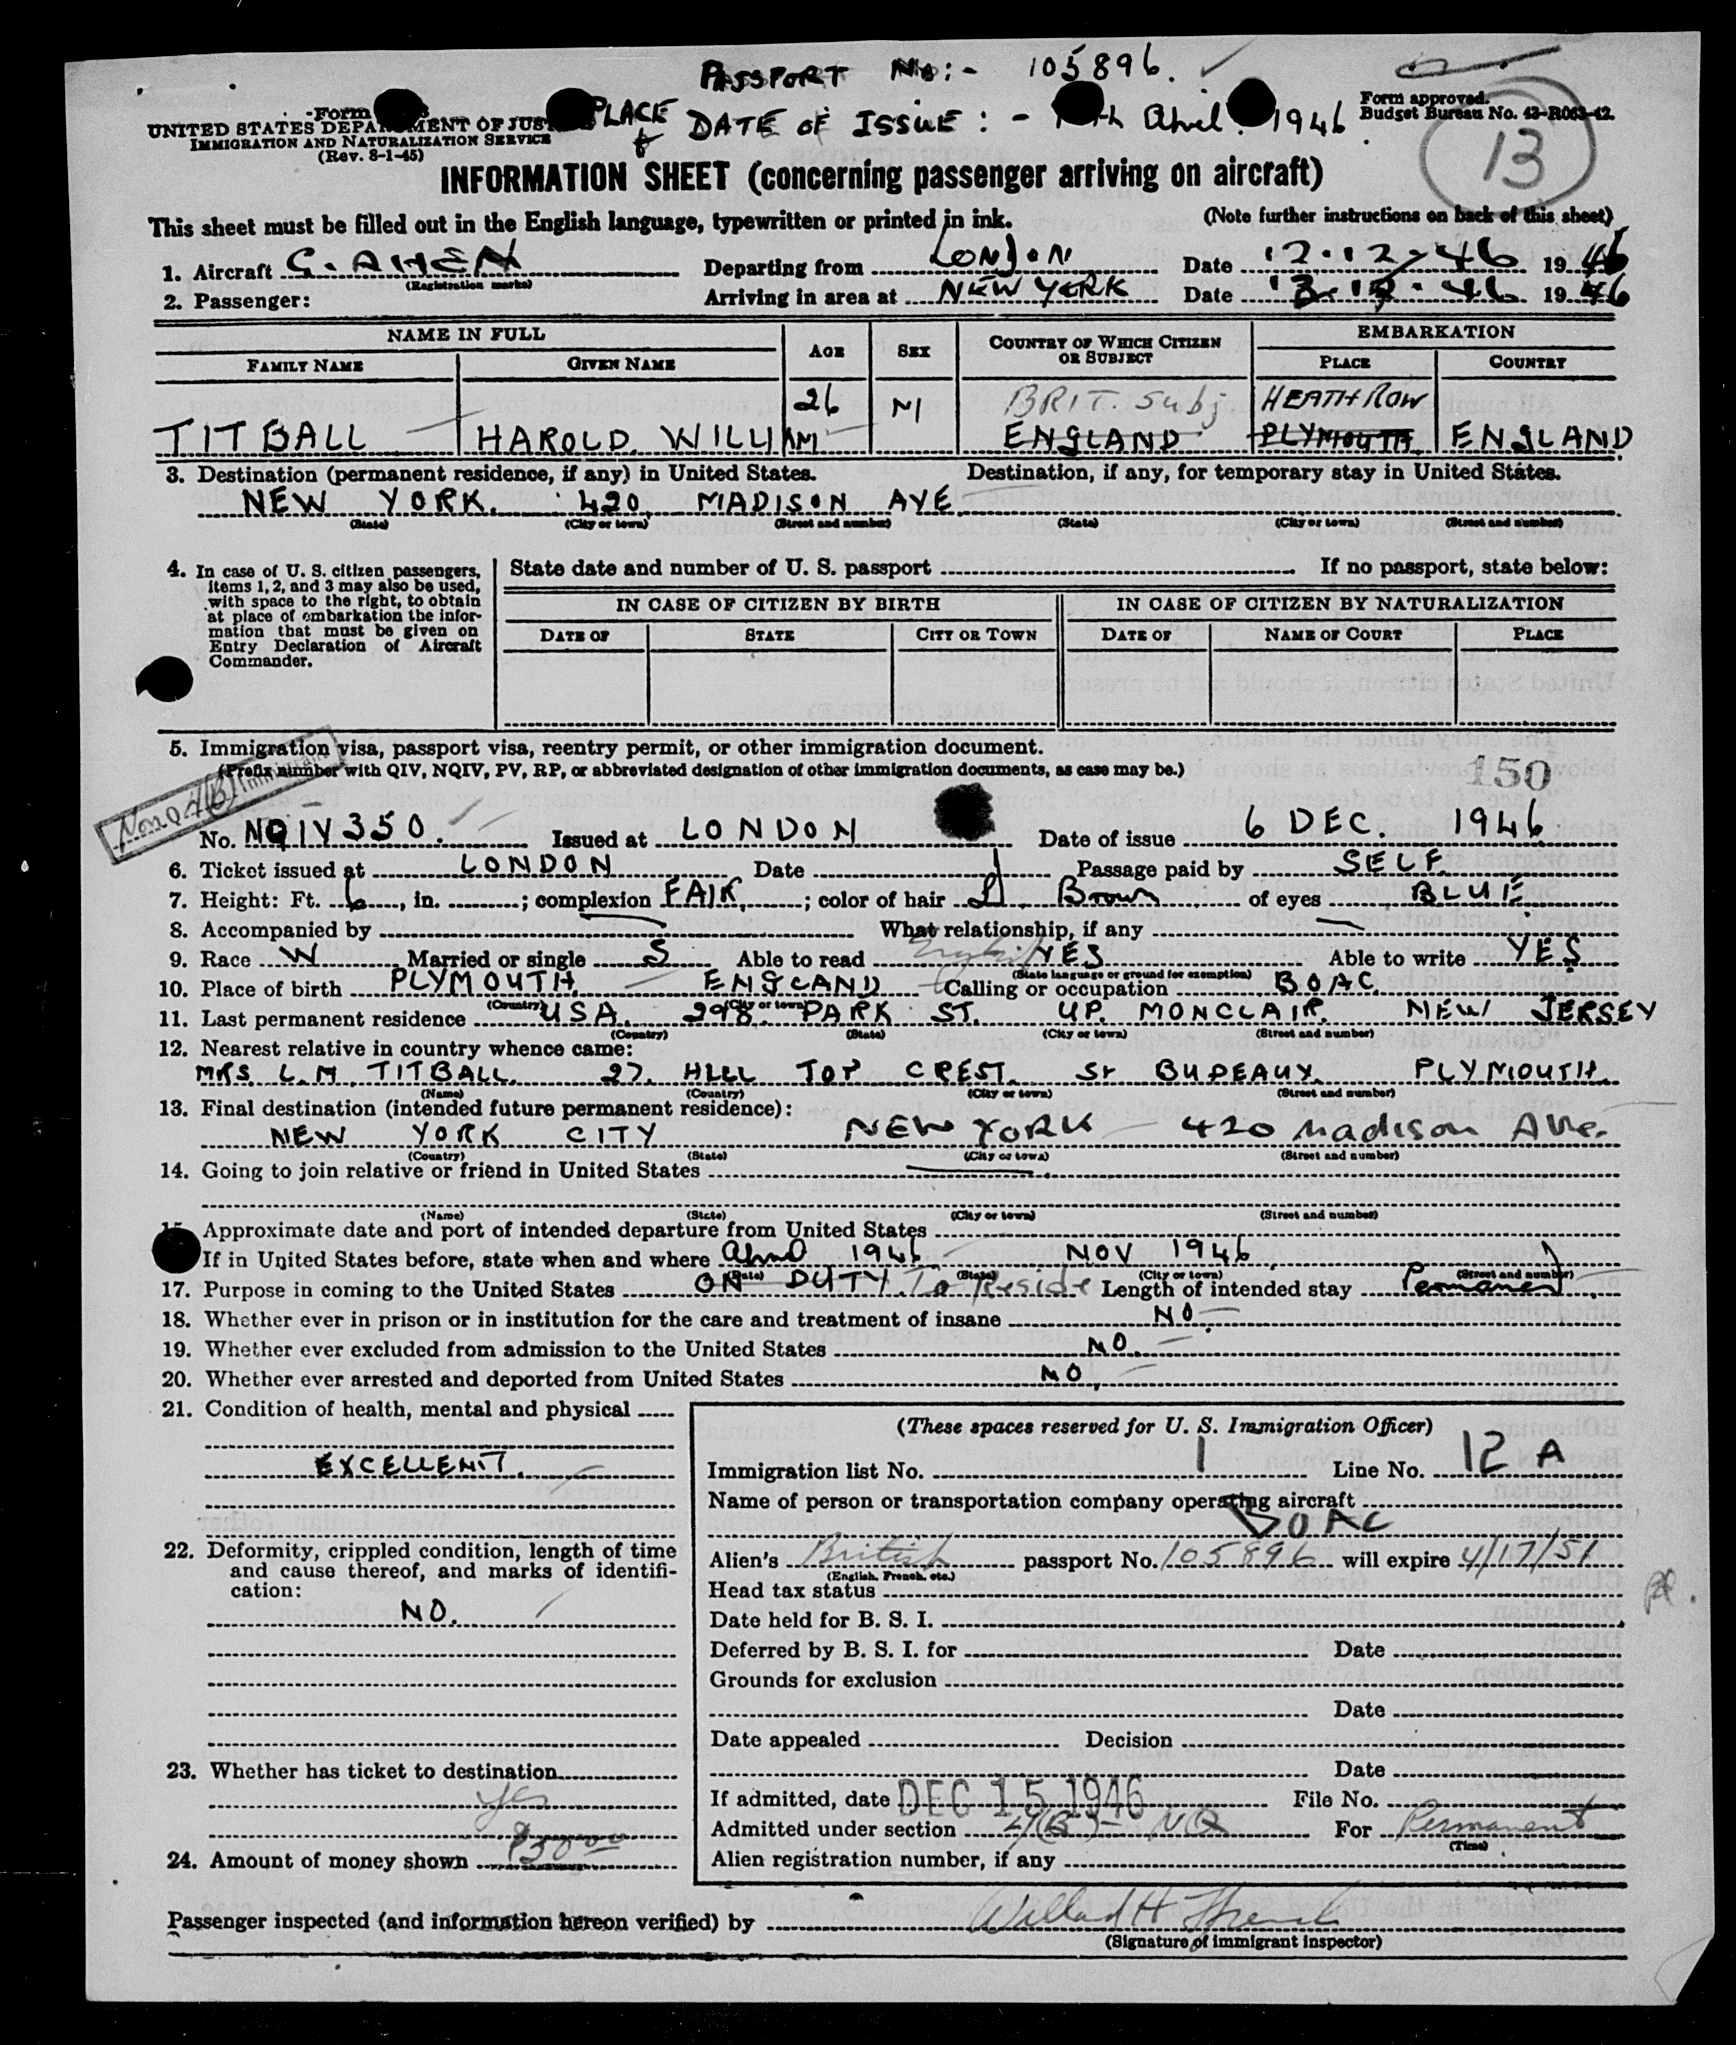 PASSPORT No:- 105896.
PLACE & DATE OF ISSUE :- April. 1946
Form
UNITED STATES DEPARTMENT OF JUSTICE
IMMIGRATION AND NATURALIZATION SERVICE
(Rev. 8-1-45)
Form approved.
Budget Bureau No. 43-R063-42.
13
INFORMATION SHEET (concerning passenger arriving on aircraft)
This sheet must be filled out in the English language, typewritten or printed in ink. (Note further instructions on back of this sheet)
1. Aircraft G. AHEN Departing from LONDON Date 12.12.46 1946
(Registration marks)
2. Passenger: Arriving in area at NEW YORK Date 1946
NAME IN FULL AGE SEX COUNTRY OF WHICH CITIZEN OR SUBJECT EMBARKATION
FAMILY NAME GIVEN NAME PLACE COUNTRY
26 M BRIT. Subj HEATHROW
TITBALL HAROLD. WILLIAM ENGLAND PLYMOUTH ENGLAND
3. Destination (permanent residence, if any) in United States. Destination, if any, for temporary stay in United States.
NEW YORK. 420. MADISON AVE.
(State) (City or town) (Street and number) (State) (City or town) (Street and number)
4. In case of U. S. citizen passengers, items 1, 2, and 3 may also be used, with space to the right, to obtain at place of embarkation the information that must be given on Entry Declaration of Aircraft Commander.
State date and number of U. S. passport If no passport, state below:
IN CASE OF CITIZEN BY BIRTH IN CASE OF CITIZEN BY NATURALIZATION
DATE OF STATE CITY OR TOWN DATE OF NAME OF COURT PLACE
5. Immigration visa, passport visa, reentry permit, or other immigration document.
(Prefix number with QIV, NQIV, PV, RP, or abbreviated designation of other immigration documents, as case may be.)
150
Non Q 4(B) Immigrant
No. NQIV 350. Issued at LONDON Date of issue 6 DEC. 1946
6. Ticket issued at LONDON Date Passage paid by SELF.
7. Height: Ft. 6, in. ; complexion FAIR. ; color of hair Lt. Brown of eyes BLUE
8. Accompanied by What relationship, if any
9. Race W Married or single S Able to read English YES Able to write YES
(State language or ground for exemption)
10. Place of birth PLYMOUTH ENGLAND Calling or occupation BOAC.
(Country) (City or town)
11. Last permanent residence USA. 298. PARK ST. UP. MONCLAIR. NEW JERSEY
(Country) (State) (City or town) (Street and number)
12. Nearest relative in country whence came:
MRS L.M. TITBALL. 27. HILL TOP CREST. ST BUDEAUX. PLYMOUTH.
(Name) (Country) (City or town) (Street and number)
13. Final destination (intended future permanent residence):
NEW YORK CITY NEW YORK 420 Madison Ave.
(Country) (State) (City or town) (Street and number)
14. Going to join relative or friend in United States
(Name) (State) (City or town) (Street and number)
15. Approximate date and port of intended departure from United States
If in United States before, state when and where April 1946 NOV 1946
(Date) (State) (City or town) (Street and number)
17. Purpose in coming to the United States ON DUTY To Reside Length of intended stay Permanent
18. Whether ever in prison or in institution for the care and treatment of insane NO.
19. Whether ever excluded from admission to the United States NO.
20. Whether ever arrested and deported from United States NO.
21. Condition of health, mental and physical
EXCELLENT.
22. Deformity, crippled condition, length of time and cause thereof, and marks of identification:
NO.
23. Whether has ticket to destination
yes
24. Amount of money shown $50.00
(These spaces reserved for U. S. Immigration Officer)
Immigration list No. 1 Line No. 12 A
Name of person or transportation company operating aircraft
BOAC
Alien's British passport No. 105896 will expire 4/17/51
(English, French, etc.)
Head tax status
Date held for B. S. I.
Deferred by B. S. I. for Date
Grounds for exclusion
Date
Date appealed Decision
Date
If admitted, date DEC 15 1946 File No.
Admitted under section 4(B)- NQ For Permanent
(Time)
Alien registration number, if any
Passenger inspected (and information hereon verified) by Willard H
(Signature of immigrant inspector)